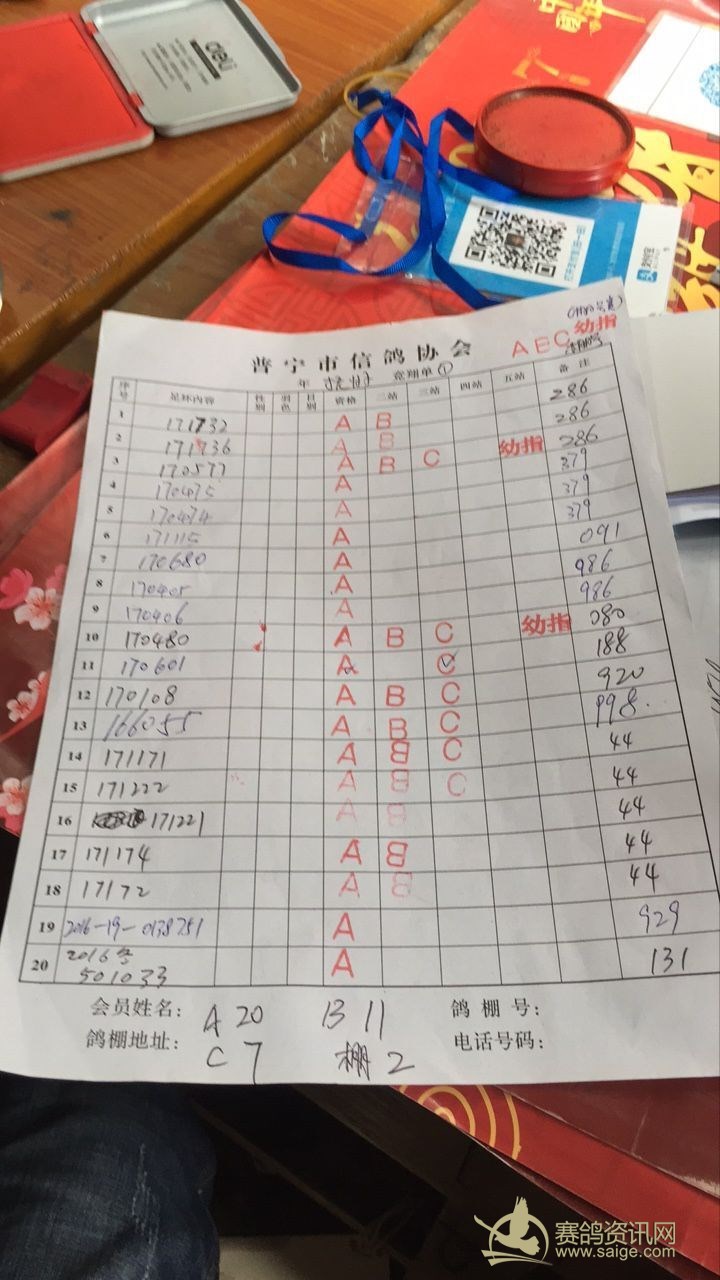 deli
中国年
普宁市信鸽协会 A B C 幼指
年 竞翔单①
序号 足环内容 性别 羽色 目别 资格 二站 三站 四站 五站 备注
1 171732 A B 286
2 171736 A B 286
3 170577 A B C 幼指 286
4 170475 A 379
5 170474 A 379
6 171115 A 379
7 170680 A 091
8 170405 A 986
9 170406 A 986
10 170480 A B C 幼指 080
11 170601 A C 188
12 170108 A B C 920
13 166055 A B C 998.
14 171171 A B C 44
15 171222 A B C 44
16 171221 A B 44
17 171174 A B 44
18 17172 A B 44
19 2016-19-0138751 A 929
20 2016 501033 A 131
会员姓名: A 20 B 11 鸽棚号:
鸽棚地址: C 7 棚 2 电话号码:
赛鸽资讯网
www.saige.com